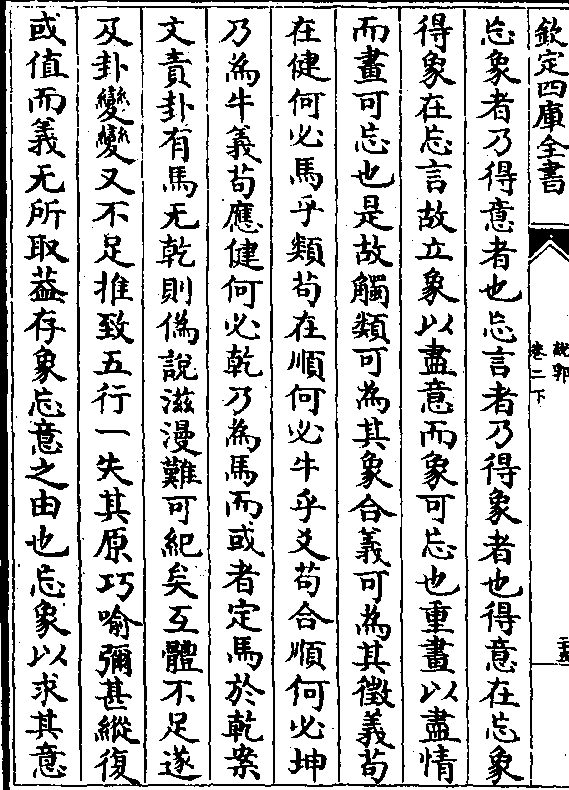 欽定四庫全書
說郛
卷二下
忘象者乃得意者也忘言者乃得象者也得意在忘象
得象在忘言故立象以盡意而象可忘也重畫以盡情
而畫可忘也是故觸類可為其象合義可為其徵義苟
在健何必馬乎類苟在順何必牛乎爻苟合順何必坤
乃為牛義苟應健何必乾乃為馬而或者定馬於乾案
文責卦有馬无乾則偽說滋漫難可紀矣互體不足遂
及卦變變又不足推致五行一失其原巧喻彌甚縱復
或值而義无所取葢存象忘意之由也忘象以求其意